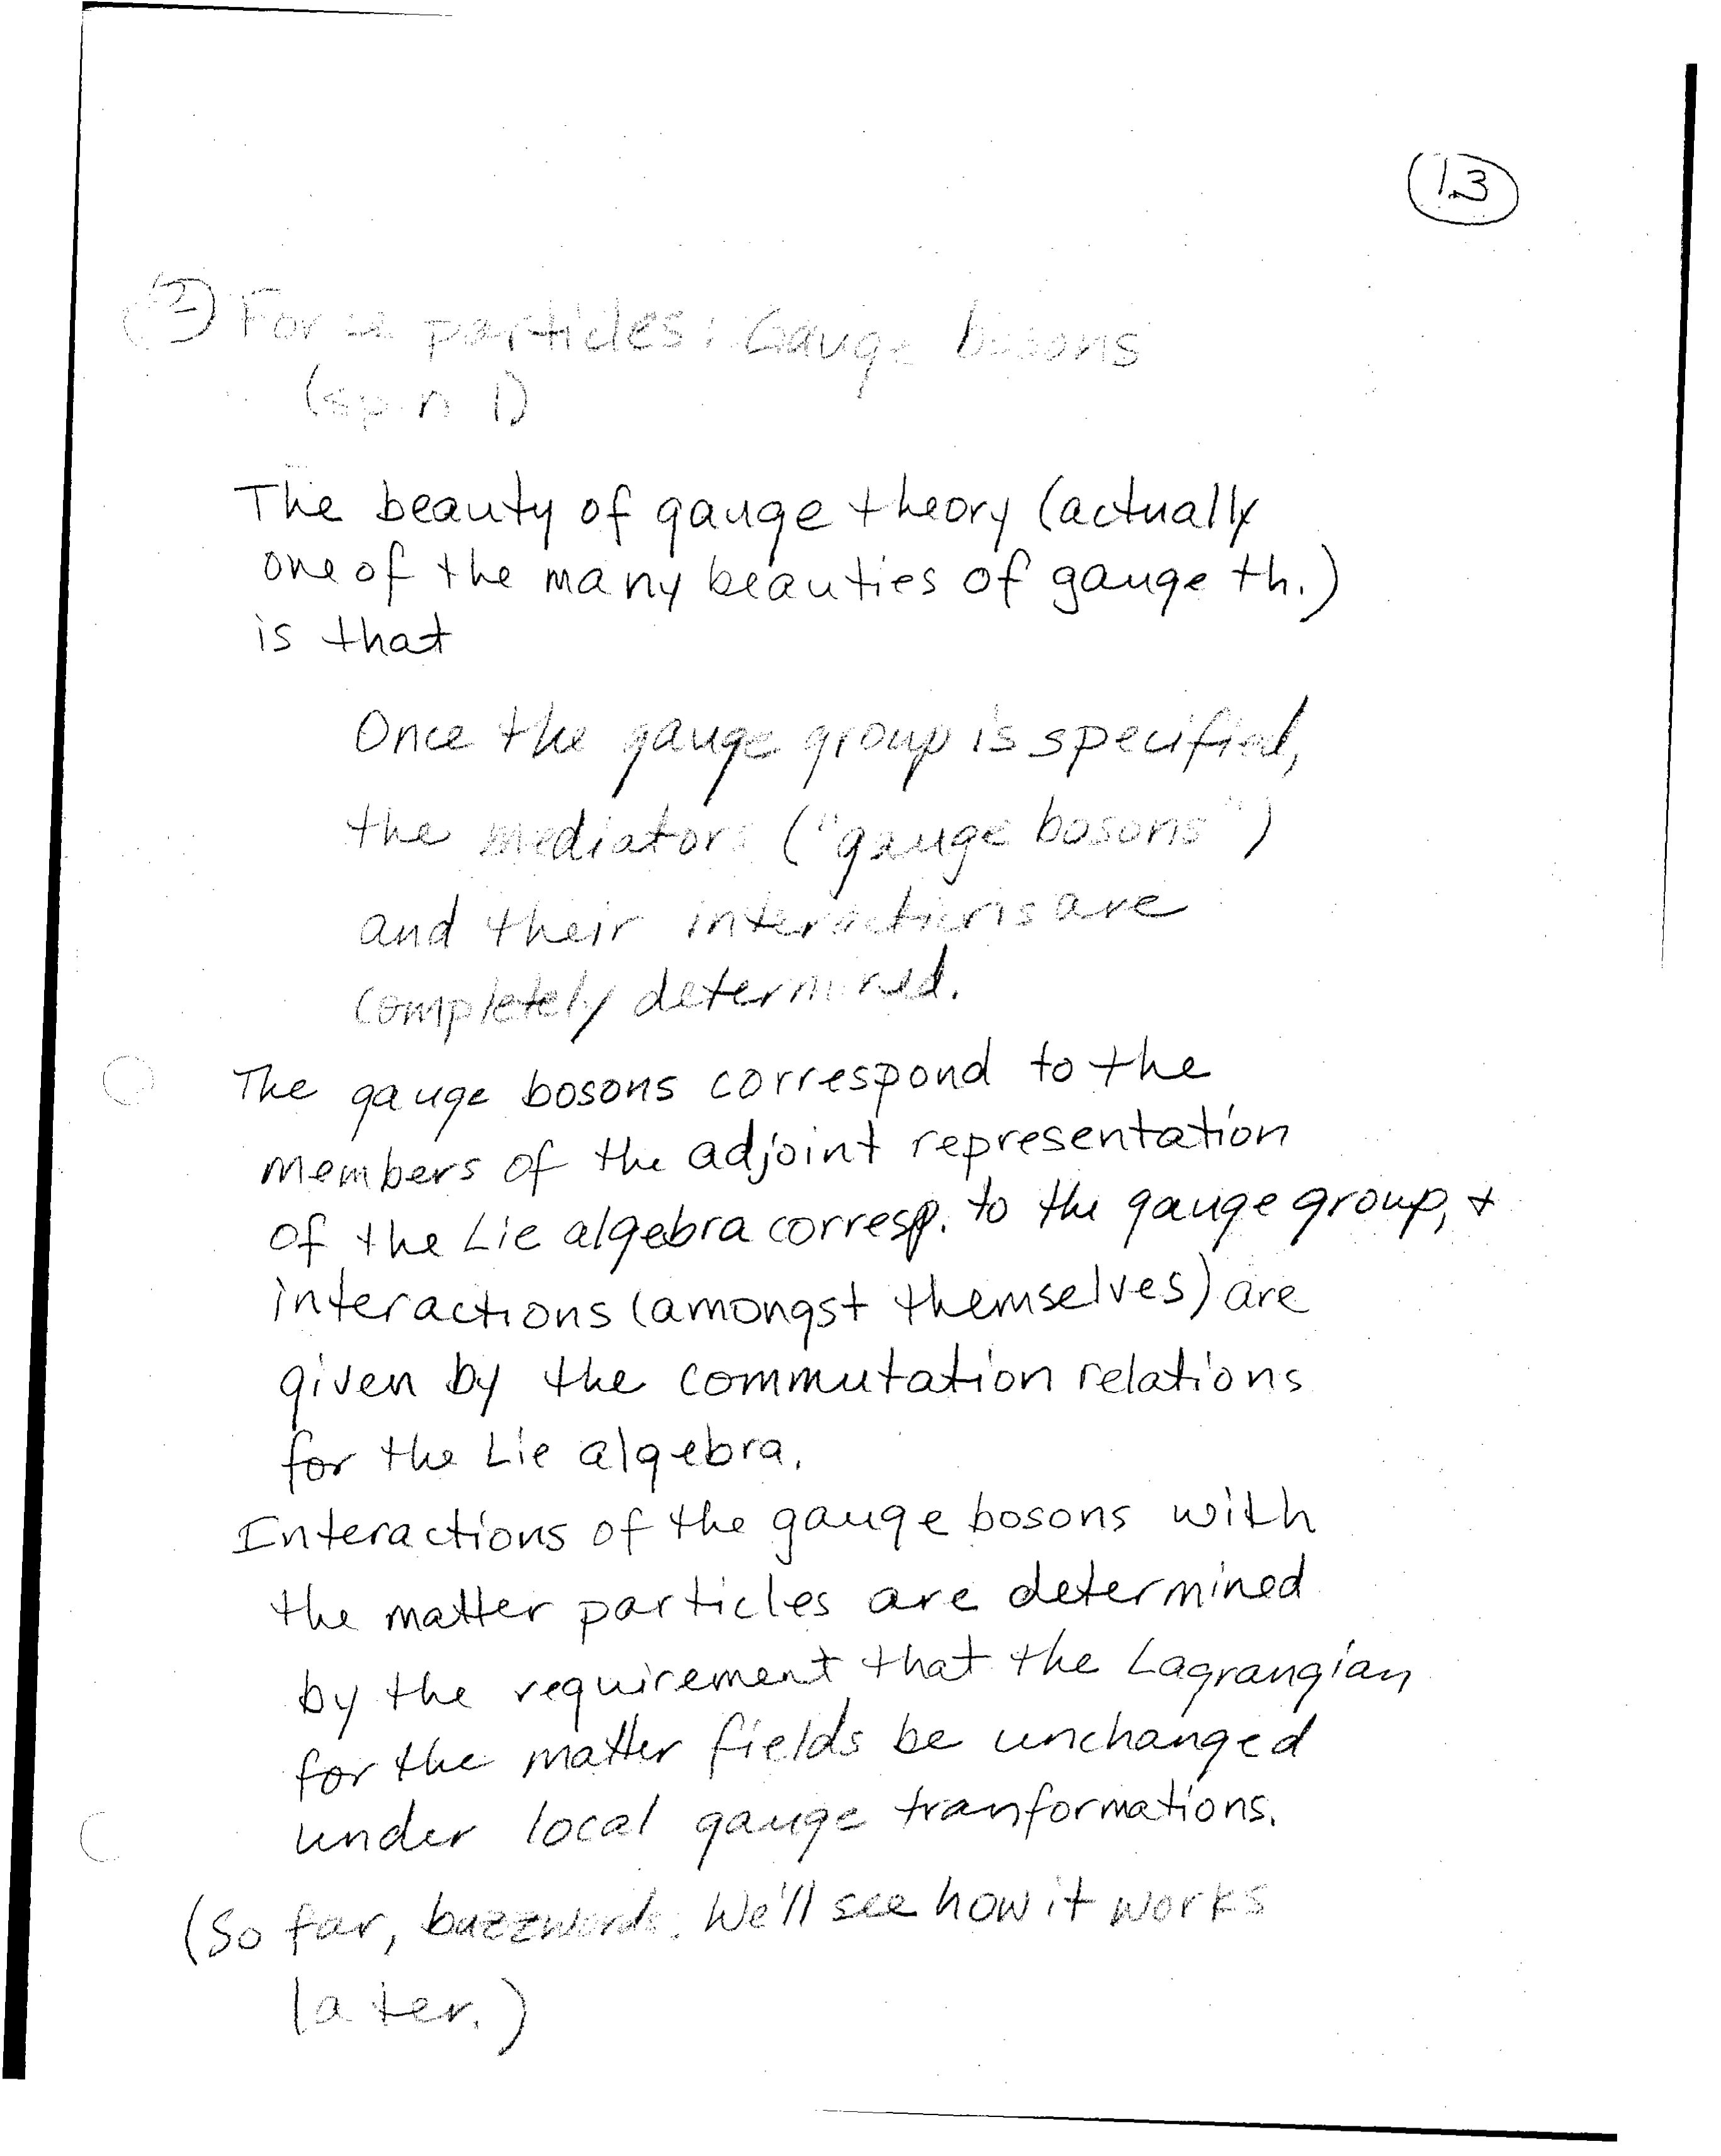 13
② Force particles: Gauge bosons
(spin 1)
The beauty of gauge theory (actually
one of the many beauties of gauge th.)
is that
Once the gauge group is specified,
the mediators ("gauge bosons")
and their interactions are
completely determined.
The gauge bosons correspond to the
members of the adjoint representation
of the Lie algebra corresp. to the gauge group, +
interactions (amongst themselves) are
given by the commutation relations
for the Lie algebra.
Interactions of the gauge bosons with
the matter particles are determined
by the requirement that the Lagrangian
for the matter fields be unchanged
under local gauge tranformations.
(So far, buzzwords. We'll see how it works
later.)